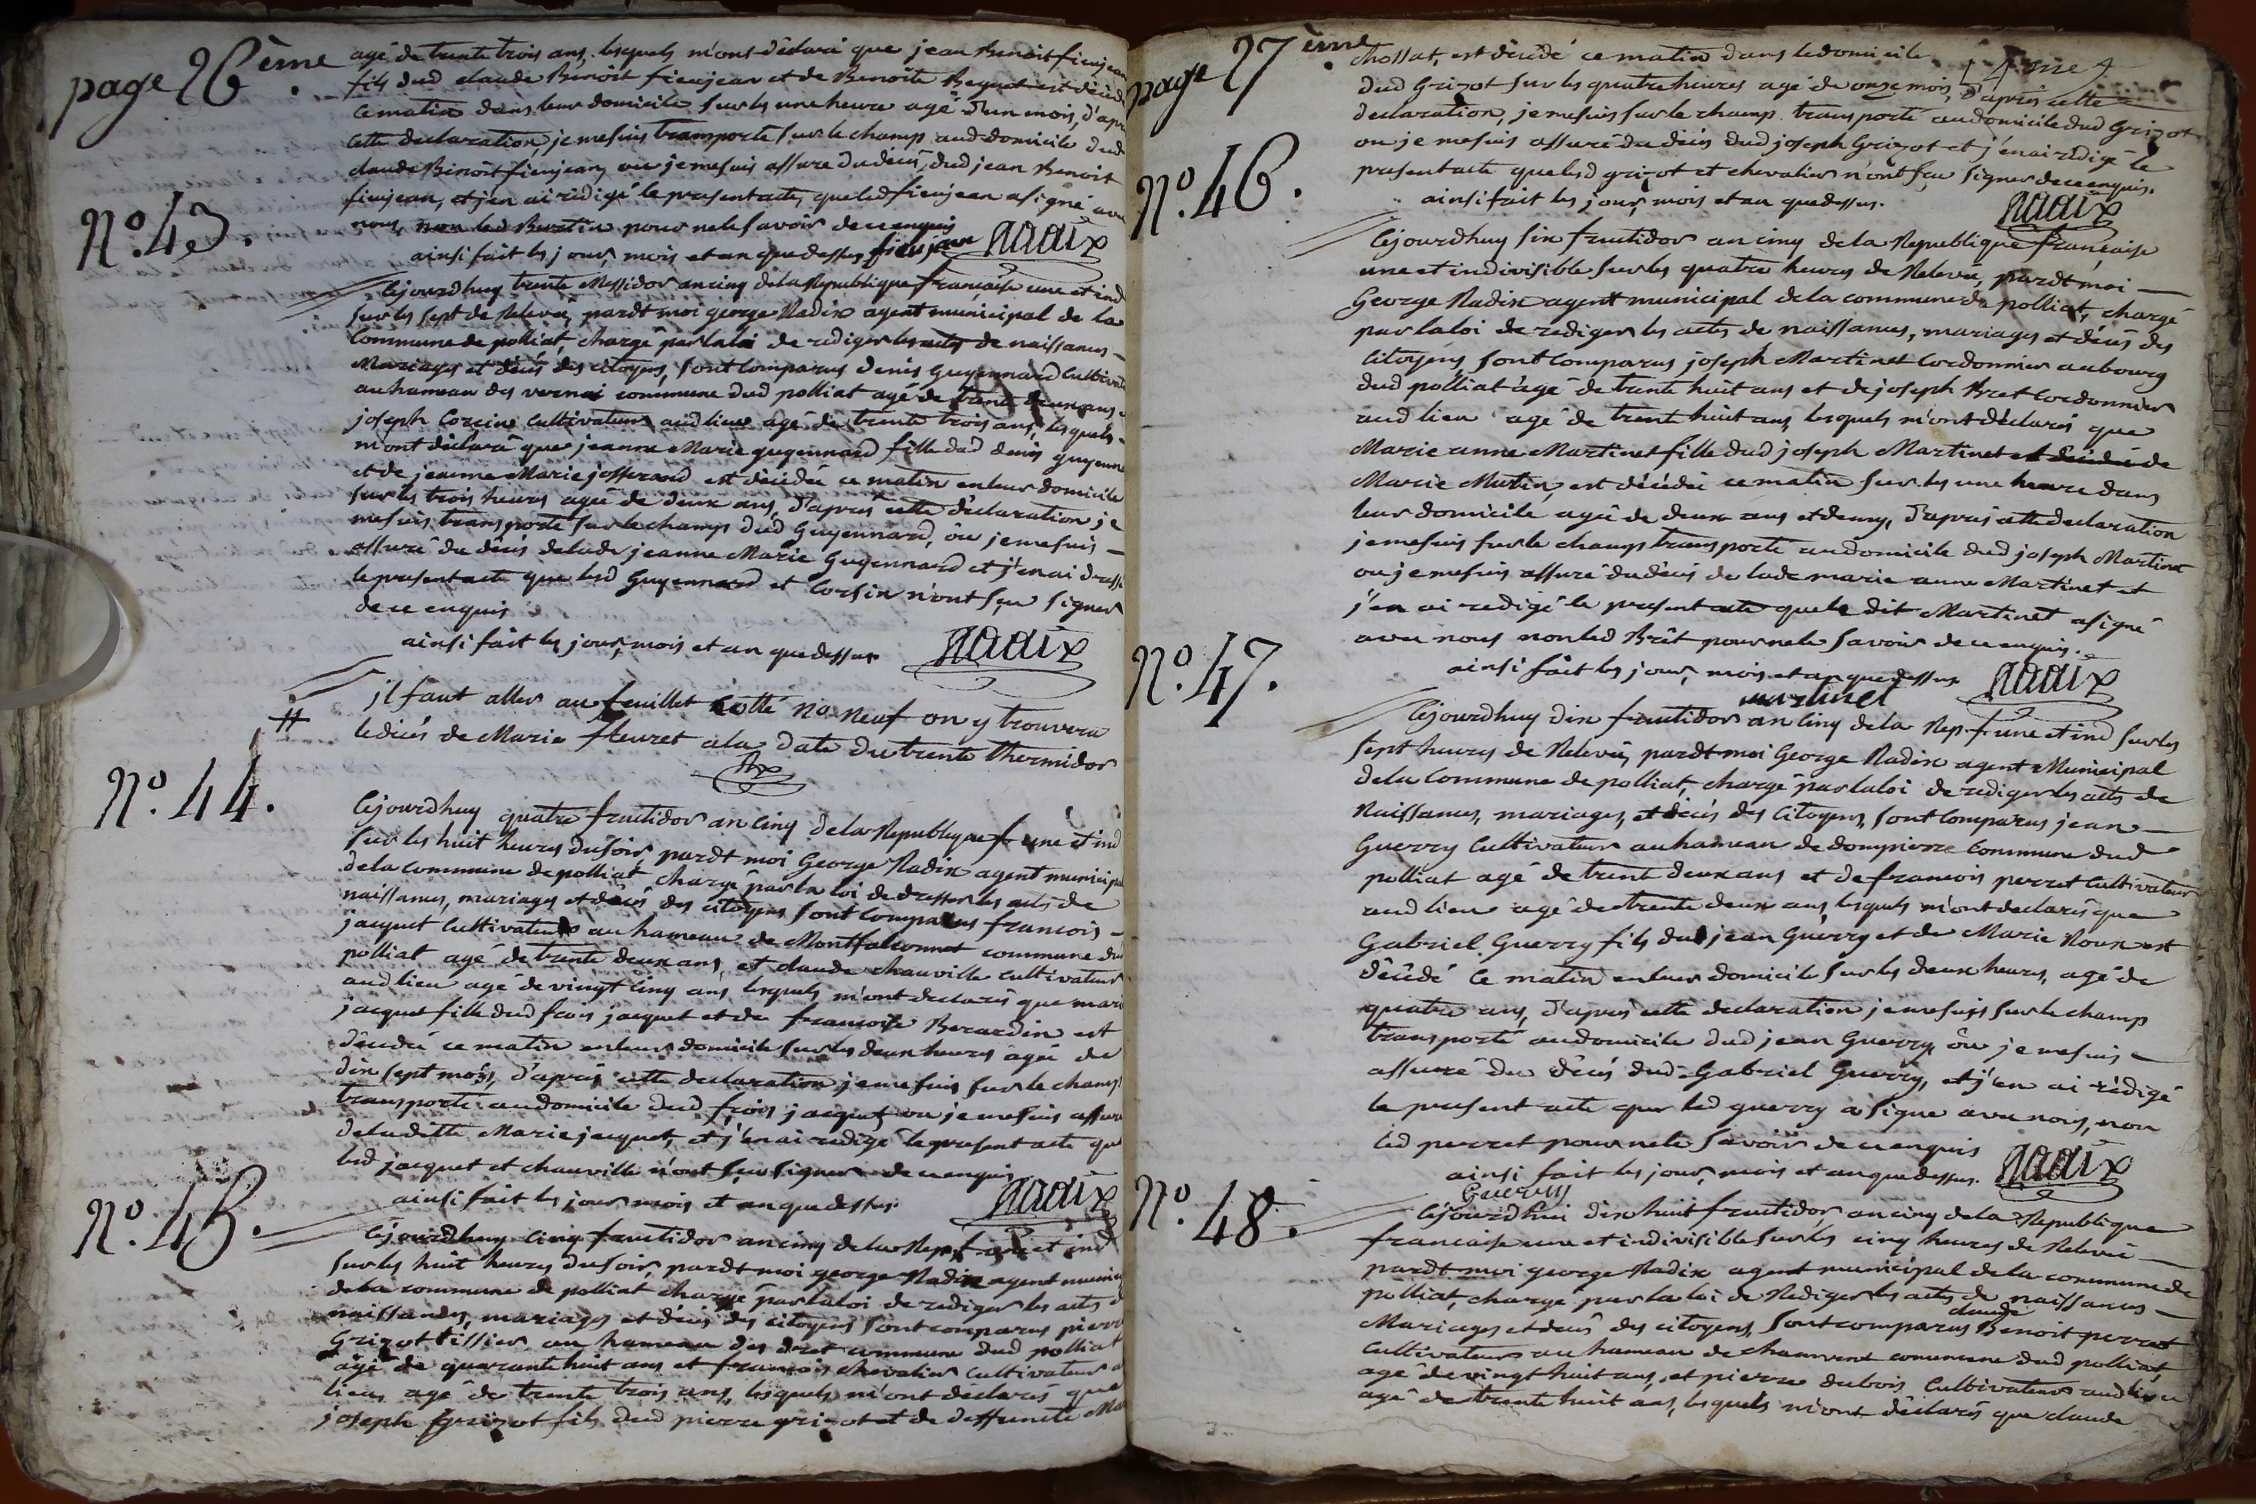 page 26ème.
agé de trente trois ans, lesquels m'ont déclaré que jean Benoit fieujean
fils dud claude Benoit fieujean et de Benoite Bequet est décédé
ce matin dans leur domicile sur les une heure agé d'un mois, d'après
cette declaration, je me suis transporté sur le champ aud domicile dud
claude Benoit fieujean, ou je me suis assuré du décés, dud jean Benoit
fieujean, et j'en ai rédigé le present acte, que led fieujean a signé avec
nous, non led Bertin pour ne le savoir de ce enquis
ainsi fait les jour, mois et an que dessus fieujean Nadix
N.o 43.
Cejourdhuy trente Messidor an cinq de la Republique française une et ind
sur les sept de Relevée, pardt moi george Nadix agent municipal de la
Commune de polliat, chargé par la loi de rediger les actes de naissances —
Mariages et décés des citoyens, sont comparus denis guyennard Cultivateur
au hameau des vernai commune dud polliat agé de trente deux ans et
joseph Corcin Cultivateur aud lieu agé de trente trois ans, lesquels
m'ont déclaré que jeanne Marie guyennard fille dud denis guyennard
et de jeanne Marie josserand est décédée ce matin en leur domicile
sur les trois heures agée de deux ans, d'après cette déclaration je
me suis transporté sur le champ dud Guyennard, ôu je me suis —
assuré du décés de lade jeanne Marie Guyennard et j'en ai dressé
le present acte que lesd Guyennard et Corsin n'ont sçu signer
de ce enquis
ainsi fait les jour, mois et an que dessus Nadix
# jl faut aller au feuillet cotté No neuf on y trouvera
le décés de Marie fleuret a la date du trente thermidor
N.o 44.
Cejourdhuy quatre fructidor an cinq de la Republique f une et ind
sur les huit heures du soir, pardt moi George Nadix agent municipal
de la commune de polliat, chargé par la loi de dresser les actes de
naissances, mariages et décés des citoyens sont comparus francois —
jacquet Cultivateur au hameau de Montfalconnet commune dud
polliat agé de trente deux ans, et claude chauville cultivateur
aud lieu agé de vingt cinq ans, lesquels m'ont declarés que marie
jacquet fille dud frois jacquet et de francoise Berardin est
décédée ce matin en leur domicile sur les deux heures agée de
dix sept mois, d'après cette declaration je me suis sur le champ
transporté au domicile dud frois jacquet, ou je me suis assuré
de laditte Marie jacquet, et j'en ai redigé le present acte que
lesd jacquet et chauville n'ont sçu signer de ce enquis
ainsi fait les jour mois et an que dessus. Nadix
N.o 45.
Cejourdhuy cinq fructidor an cinq de la Rep. f une et ind
sur les huit heures du soir, pardt moi george Nadix agent municipal
de la commune de polliat chargé par la loi de rediger les actes de
naissances, mariages et décés des citoyens sont comparus pierre
Grizot tissier au hameau des dret commune dud polliat
agé de quarante huit ans et francois chevalier Cultivateur aud
lieu, agé de trente trois ans, lesquels m'ont déclarés que
joseph Grizot fils dud pierre grizot et de deffuncte Marie
page 27ème.
chossat, est décédé ce matin dans le domicile
dud Grizot sur les quatre heures agé de onze mois, d'après cette
declaration, je me suis sur le champ transporté au domicile dud Grizot
ou je me suis assuré du décés dud joseph Grizot et j'en ai rédigé le
present acte que lesd grizot et chevalier n'ont sçu signer de ce enquis.
ainsi fait les jour, mois et an que dessus. Nadix
N.o 46.
Cejourdhuy six fructidor an cinq de la Republique française
une et indivisible sur les quatre heures de Relevée, pardt moi —
George Nadix agent municipal de la commune de polliat, chargé
par la loi de rediger les actes de naissances, mariages et décés des
Citoyens sont comparus joseph Martinet Cordonnier au bourg
dud polliat agé de trente huit ans et de joseph Bret Cordonnier
aud lieu agé de trente huit ans, lesquels m'ont déclarés que
Marie anne Martinet fille dud joseph Martinet et de
Marie Mutin, est décédée ce matin sur les une heure dans
leur domicile agée de deux ans et demy, d'après cette declaration
je me suis sur le champ transporté au domicile dud joseph Martinet
ou je me suis assuré du décés de lade marie anne Martinet et
j'en ai redigé le present acte que le dit Martinet a signé
avec nous non led Brêt pour ne le savoir de ce enquis.
ainsi fait les jour, mois et an que dessus Nadix
martinet
N.o 47.
Cejourdhuy dix fructidor an Cinq de la Rep. f une et ind sur les
sept heures de Relevée, pardt moi George Nadix agent Municipal
de la Commune de polliat, chargé par la loi de rediger les actes de
Naissances, mariages, et décés des Citoyens, sont comparus jean —
Guerry Cultivateur au hameau de dompierre Commune dud
polliat agé de trente deux ans et de francois perret Cultivateur
aud lieu agé de trente deux ans, lesquels m'ont declarés que
Gabriel Guerry fils dud jean Guerry et de Marie Roux est
décédé ce matin en leur domicile sur les deux heures, agé de
quatre ans, d'après cette declaration je me suis sur le champ
transporté au domicile dud jean Guerry, ôu je me suis —
assuré du décés dud Gabriel Guerry, et j'en ai rédigé
le present acte que led guerry a signe avec nous, non
led perret pour ne le savoir de ce enquis
ainsi fait les jour, mois et an que dessus. Nadix
Guerry
N.o 48.
Cejourdhui dix huit fructidor, an cinq de la Republique
francaise une et indivisible sur les cinq heures de Relevée
pardt moi george Nadix agent municipal de la commune de
polliat, chargé par la loi de Rediger les actes de naissances —
claude
Mariages et decés des citoyens, sont comparus Benoit perret
Cultivateur au hameau de commune dud polliat,
agé de vingt huit ans, et pierre dubois Cultivateur aud lieu
agé de trente huit ans, lesquels m'ont déclarés que claude